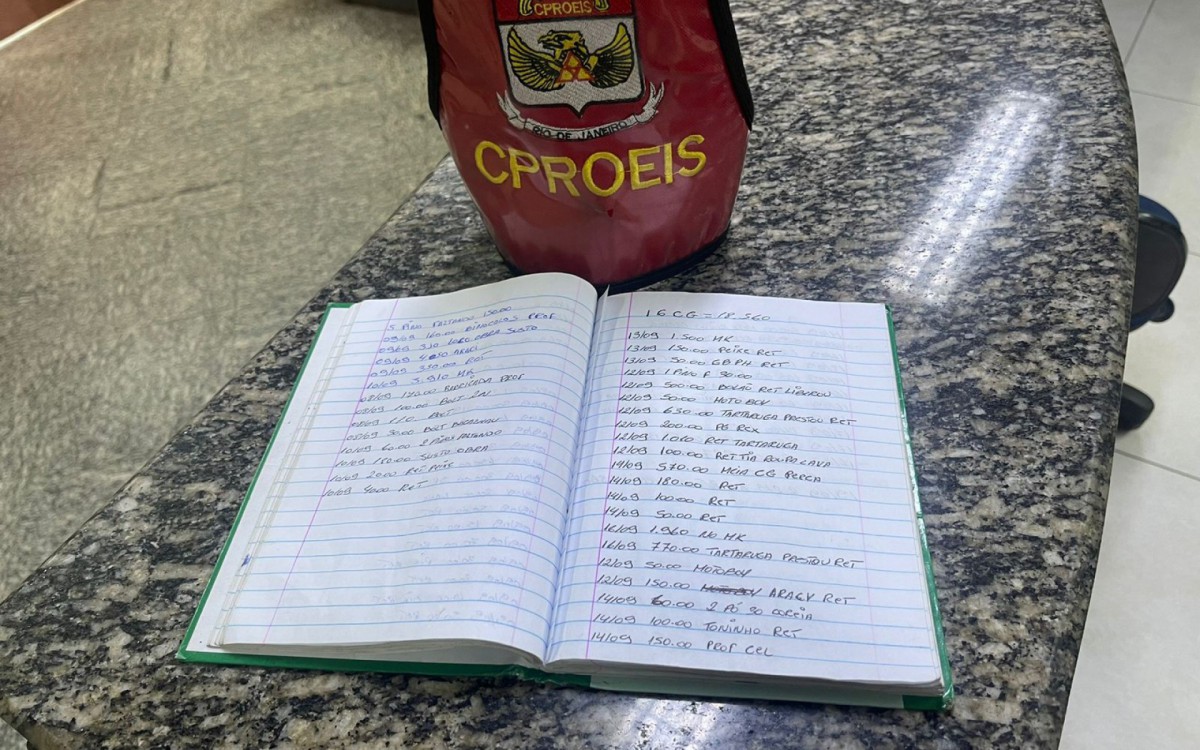 CPROEIS
RIO DE JANEIRO
CPROEIS
5 PINO FALTANDO 150.00
09/09 160.00 BINOCULOS PROF
09/09 320 LORO OBRA SUSTO
09/09 4050
09/09 350.00 RET
10/09 3.910 MK
08/09 120.00 PROF
08/09 100.00 BOLT
08/09 110 RET
08/09 30.00 BOLT
10/09 60.00 2 PINOS FALTANDO
10/09 150.00 SUSTO OBRA
10/09 2000 RET
10/09 4000 RET
16 CG = 18.560
13/09 1.500 MK
13/09 150.00 PEIXE RET
13/09 50.00 GBPH RET
12/09 1 PINO P 50.00
12/09 500.00 BOLÃO RET LIBEROU
12/09 50.00 MOTOBOY
12/09 630.00 TARTARUGA PRESTOU RET
12/09 200.00 PG REX
12/09 1.010 RET TARTARUGA
12/09 100.00 RET TIA ROUPA LAVA
14/09 570.00 MEIA CG PERCA
14/09 180.00 RET
14/09 100.00 RET
14/09 50.00 RET
16/09 1.960 NO MK
16/09 770.00 TARTARUGA PRESTOU RET
12/09 50.00 MOTOBOY
12/09 150.00 ARACY RET
14/09 60.00 2 PÓ 30 CORRIA
14/09 100.00 TONINHO RET
14/09 150.00 PROF CEL